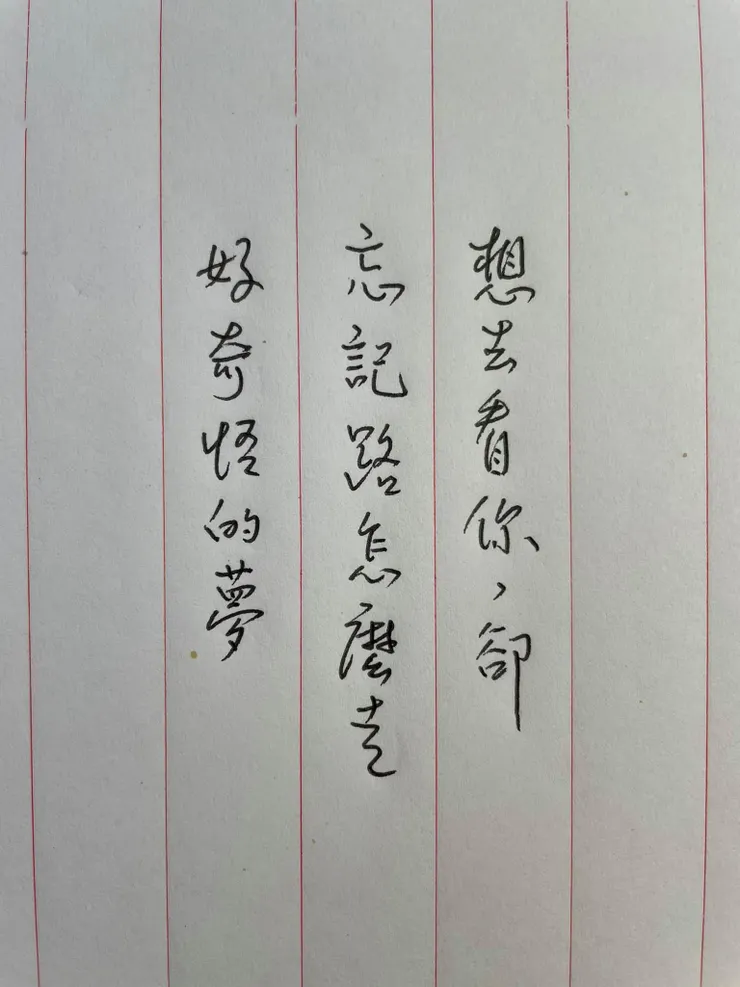 想去看你，卻
忘記路怎麼走
好奇怪的夢